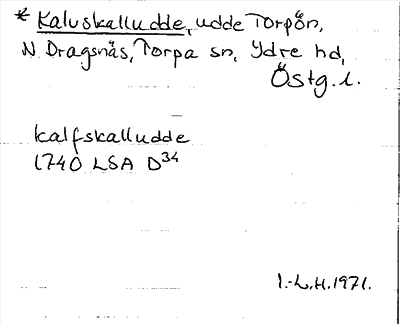 * Kalvskalludde, udde Torpön,
N Dragsnäs, Torpa sn, Ydre hd,
Östg.l.
kalfskalludde
1740 LSA D34
I.-L.H.1971.